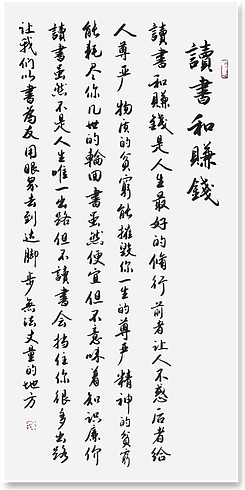 讀書和賺錢
讀書和賺錢是人生最好的修行前者讓人不惑后者給
人尊严物质的貧窮能摧毀你一生的尊严精神的貧窮
能耗尽你几世的輪回書虽然便宜但不意味着知识廉价
讀書虽然不是人生唯一出路但不讀書会挡住你很多出路
让我们以書為友用眼界去到达脚步無法丈量的地方